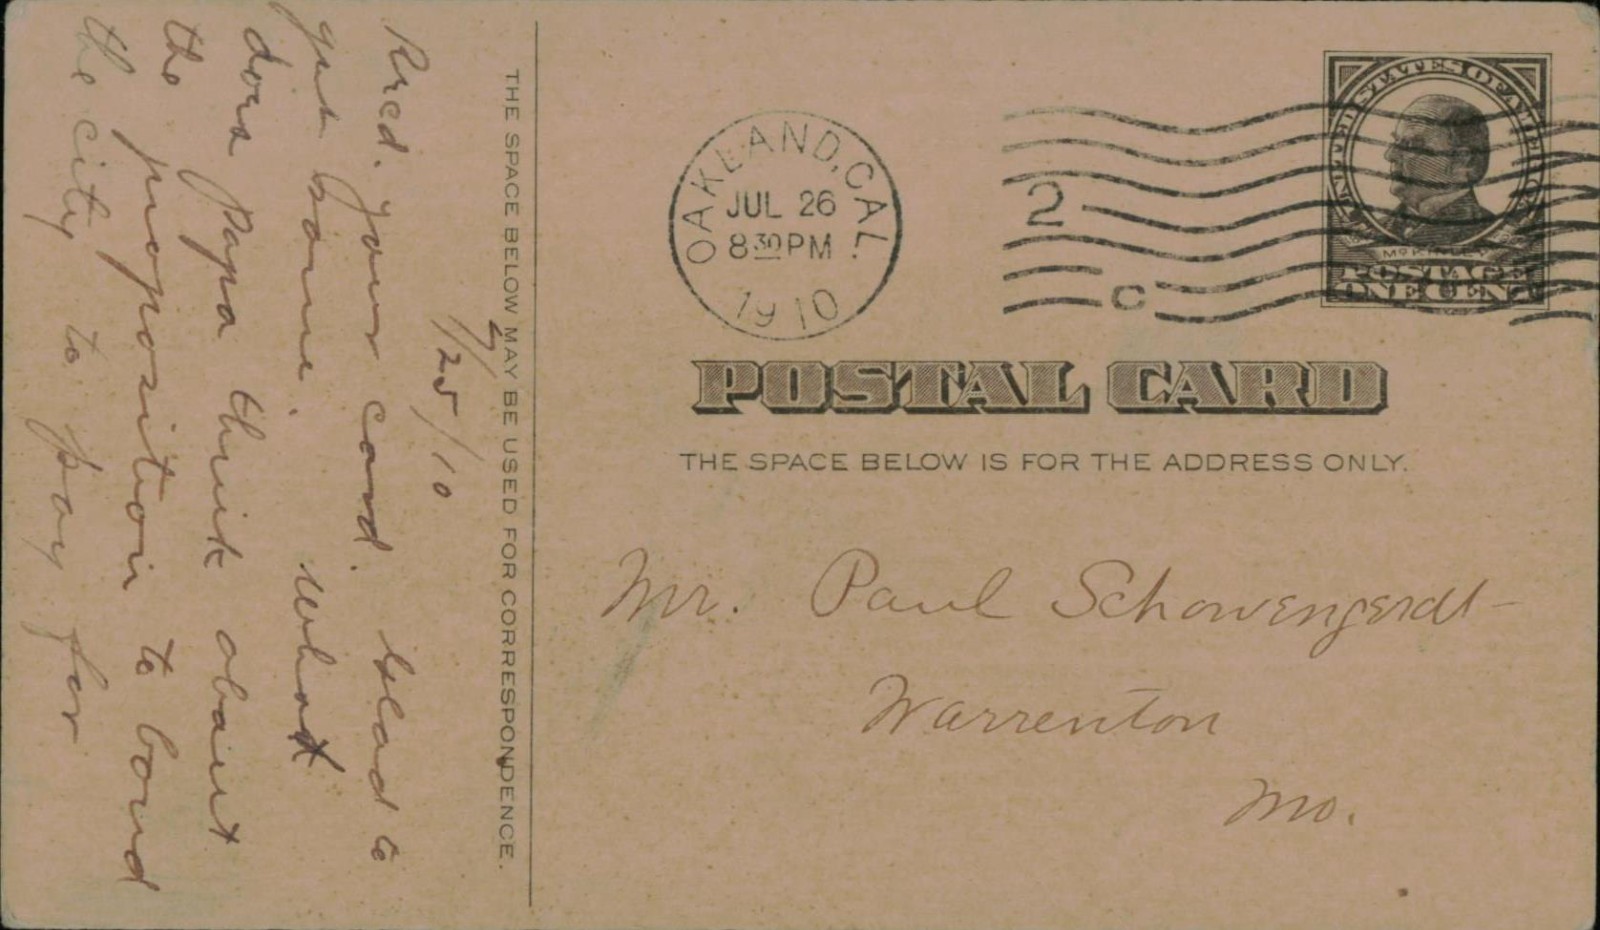 THE SPACE BELOW MAY BE USED FOR CORRESPONDENCE.
7/25/10
Rrcd. your card. Glad to
get some. What
does Papa think about
the proposition to bond
the city to pay for
OAKLAND, CAL.
JUL 26
8 30 PM
1910
2
C
UNITED STATES OF AMERICA
McKINLEY
POSTAGE
ONE CENT
POSTAL CARD
THE SPACE BELOW IS FOR THE ADDRESS ONLY.
Mr. Paul Schowengerdt
Warrenton
Mo.